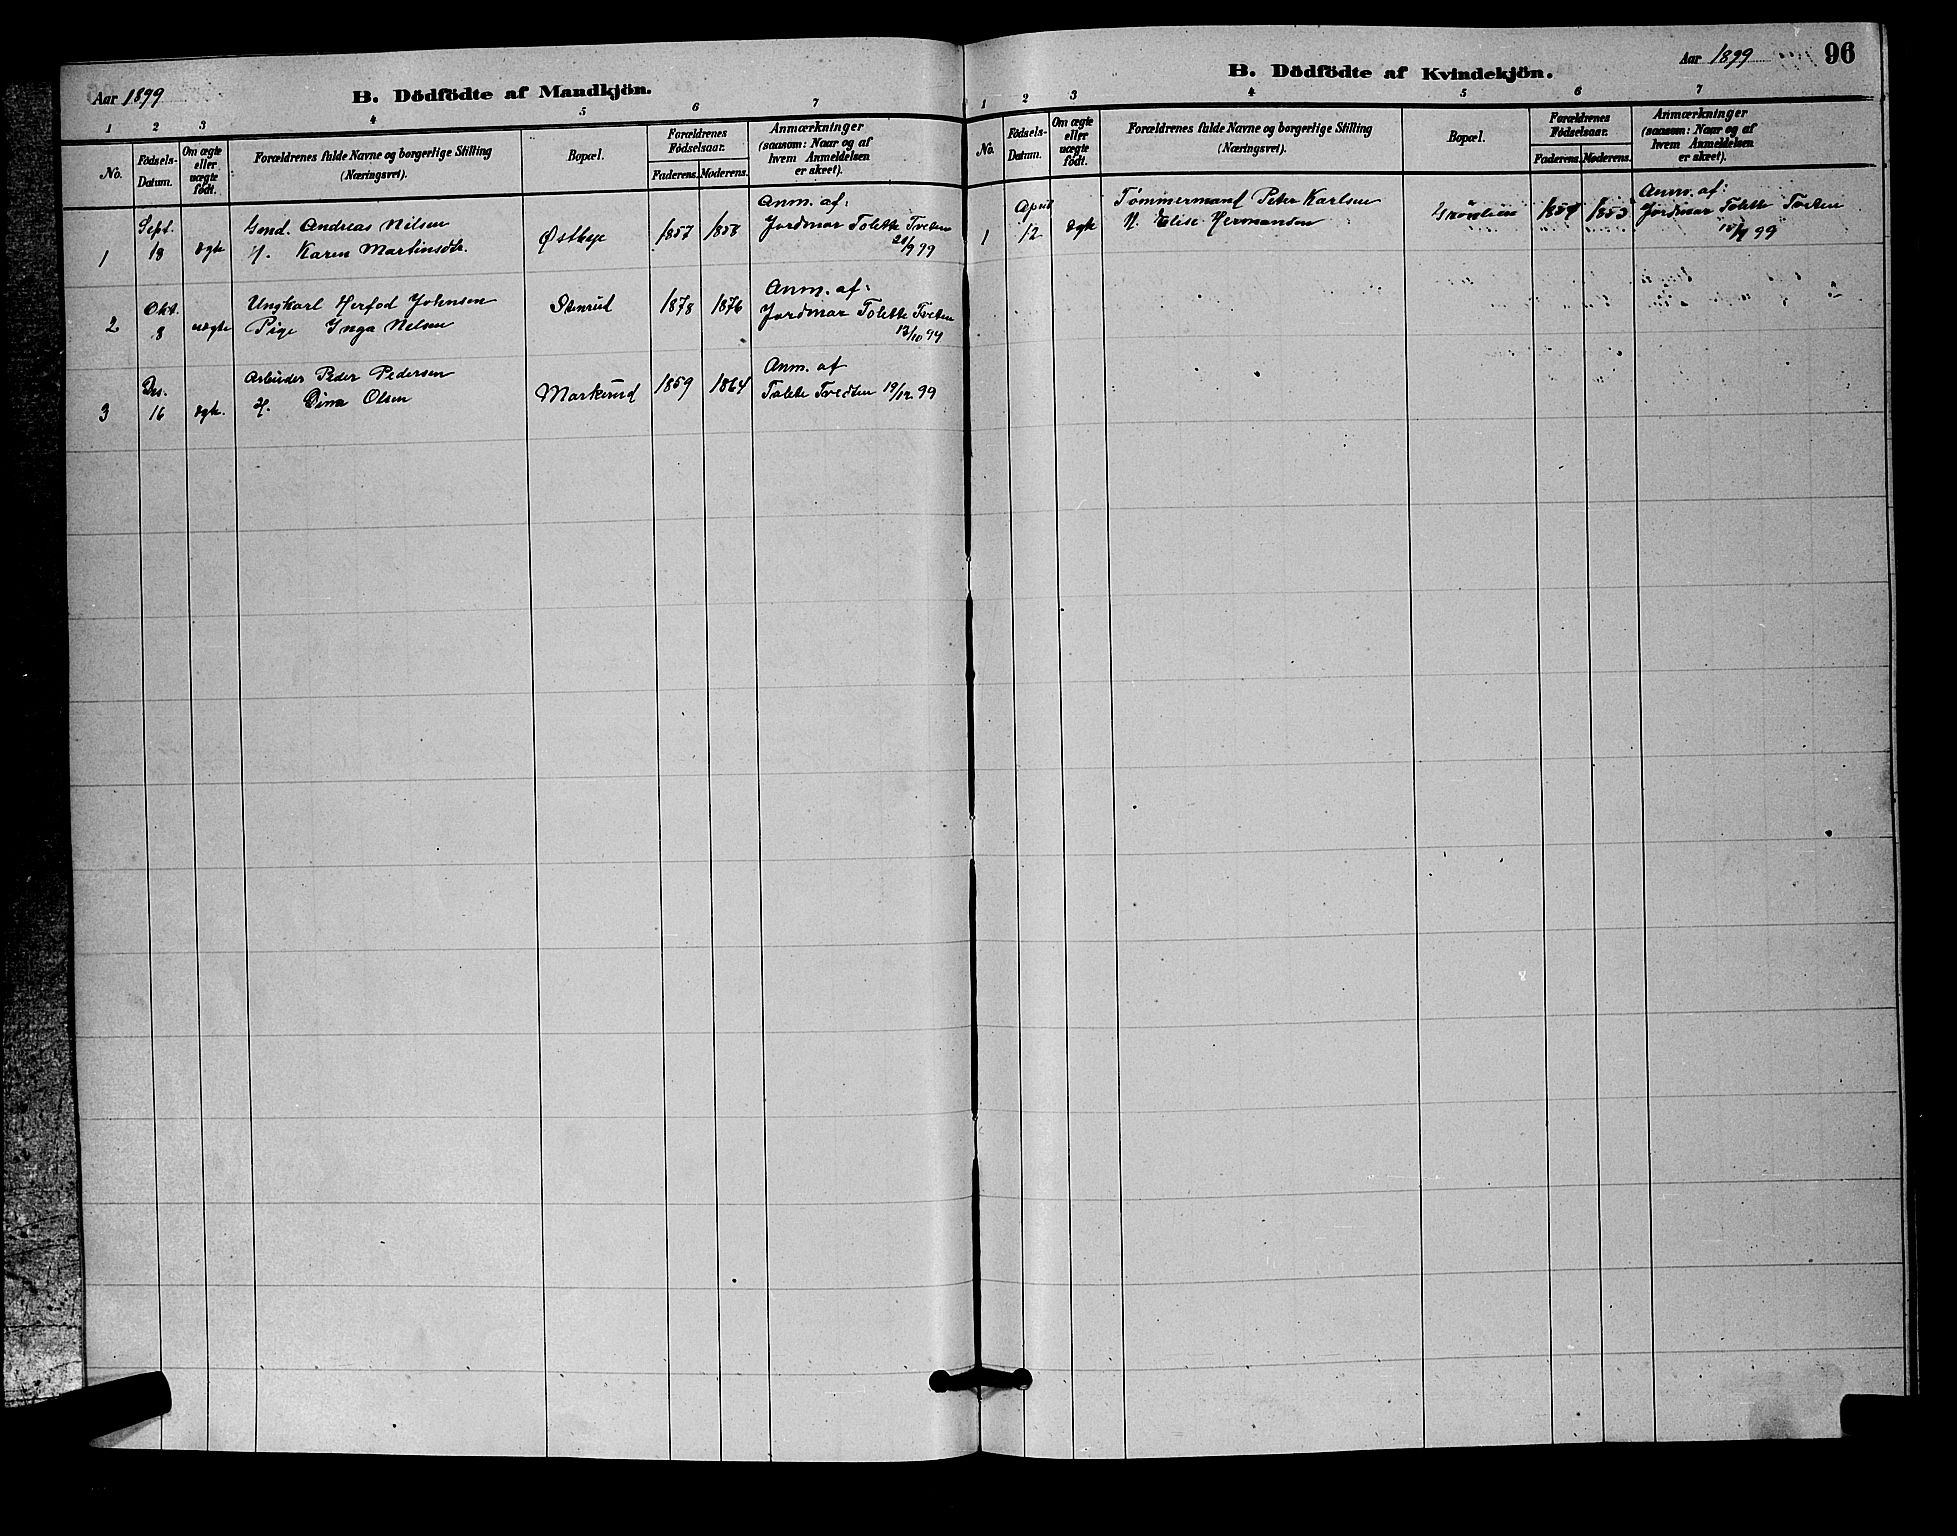 Aar 1899
B. Dödfödte af Mandkjön.
1 2 3 4 5 6 7
No.
Födsels-
Datum.
Om ægte
eller
uægte
födt.
Forældrenes fulde Navne og borgerlige Stilling
(Næringsvei).
Bopæl.
Forældrenes
Födselsaar.
Faderens. Moderens.
Anmærkninger
(saasom: Naar og af
hvem Anmeldelsen
er skeet).
1 Sept. 18 ægte Andreas Nilsen
H. Karen Martinsdtr.
Østbye 1857 1858
Anm. af:
Jordmor Tolette Tveten
21/9 99
2 Okt. 8 uægte Ungkarl Herfod Johnsen
Pige Ynga Nelsen
Stenrud 1878 1876
Anm. af:
Jordmor Tolette Tveten
13/10 99
3 Des. 16 ægte. Arbeider Peder Pedersen
H. Dina Olsen
Markerud 1859 1864
Anm. af
Tolette Tvedten 19/12 99
Aar 1899
96
B. Dödfödte af Kvindekjön.
1 2 3 4 5 6 7
No.
Födsels-
Datum.
Om ægte
eller
uægte
födt.
Forældrenes fulde Navne og borgerlige Stilling
(Næringsvei).
Bopæl.
Forældrenes
Födselsaar.
Faderens. Moderens.
Anmærkninger
(saasom: Naar og af
hvem Anmeldelsen
er skeet).
1 April 12 ægte Tømmermand Peter Karlsen
H. Elise Hermansen
1853
Anm. af:
Jordmor Tolette Tveten
99